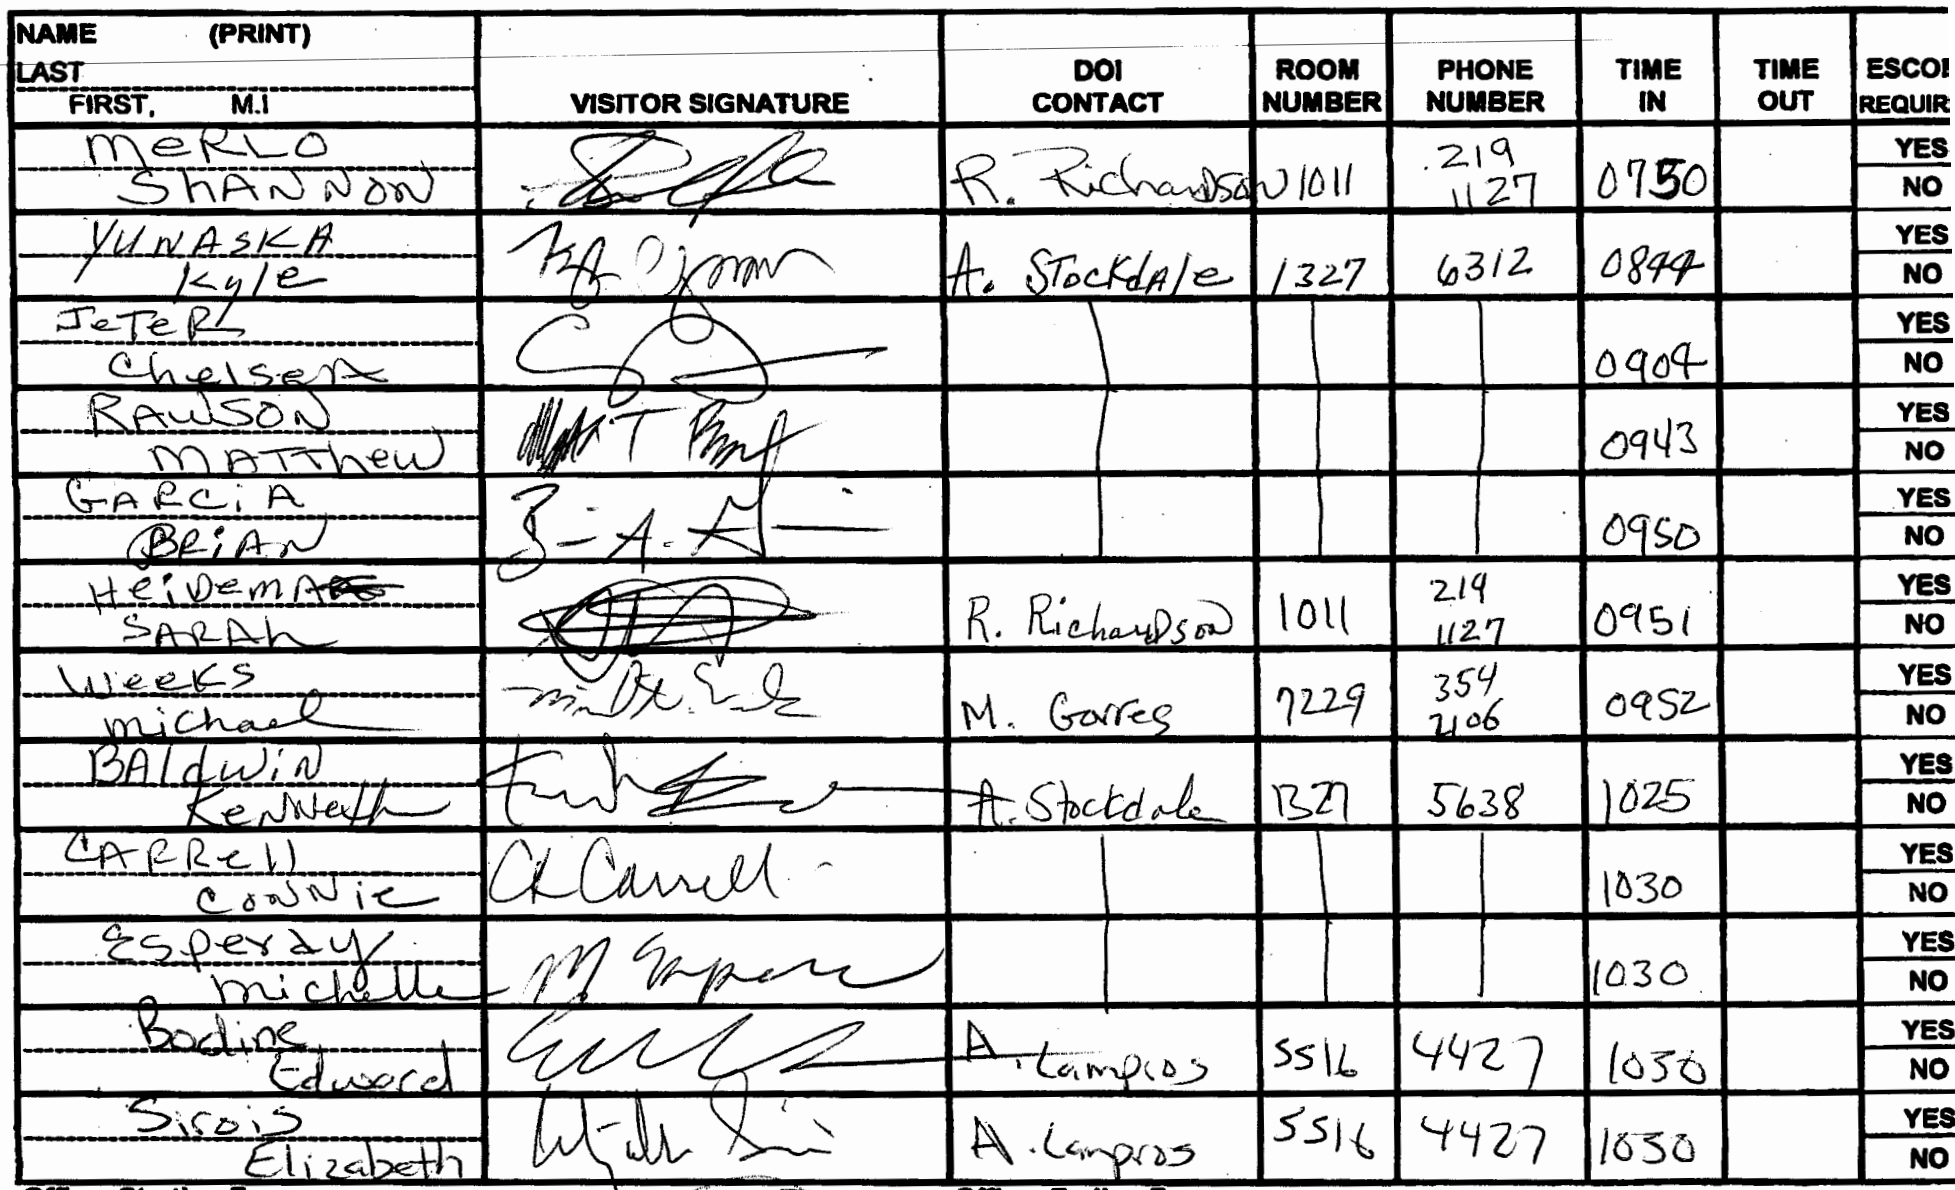 NAME (PRINT)
LAST
FIRST, M.I
VISITOR SIGNATURE
DOI CONTACT
ROOM NUMBER
PHONE NUMBER
TIME IN
TIME OUT
MERLO
SHANNON
R. Richardson 1011 219 1127 0750 YES NO
YUNASKA
Kyle
A. Stockdale 1327 6312 0844 YES NO
JETER
Chelsea
0904 YES NO
RAWSON
MATThew
0943 YES NO
GARCiA
BRiAN
0950 YES NO
SARAh
R. Richardson 1011 219 1127 0951 YES NO
Weeks
michael
M. 7229 354 2106 0952 YES NO
BAldwiN
KeNNeth
A. Stockdale 1327 5638 1025 YES NO
CARRell
CoNNie
Carrell
1030 YES NO
Esperdy
michelle
1030 YES NO
Bodine
Edward
A. Lampros 5516 4427 1030 YES NO
Sirois
Elizabeth
A. Lampros 5516 4427 1030 YES NO